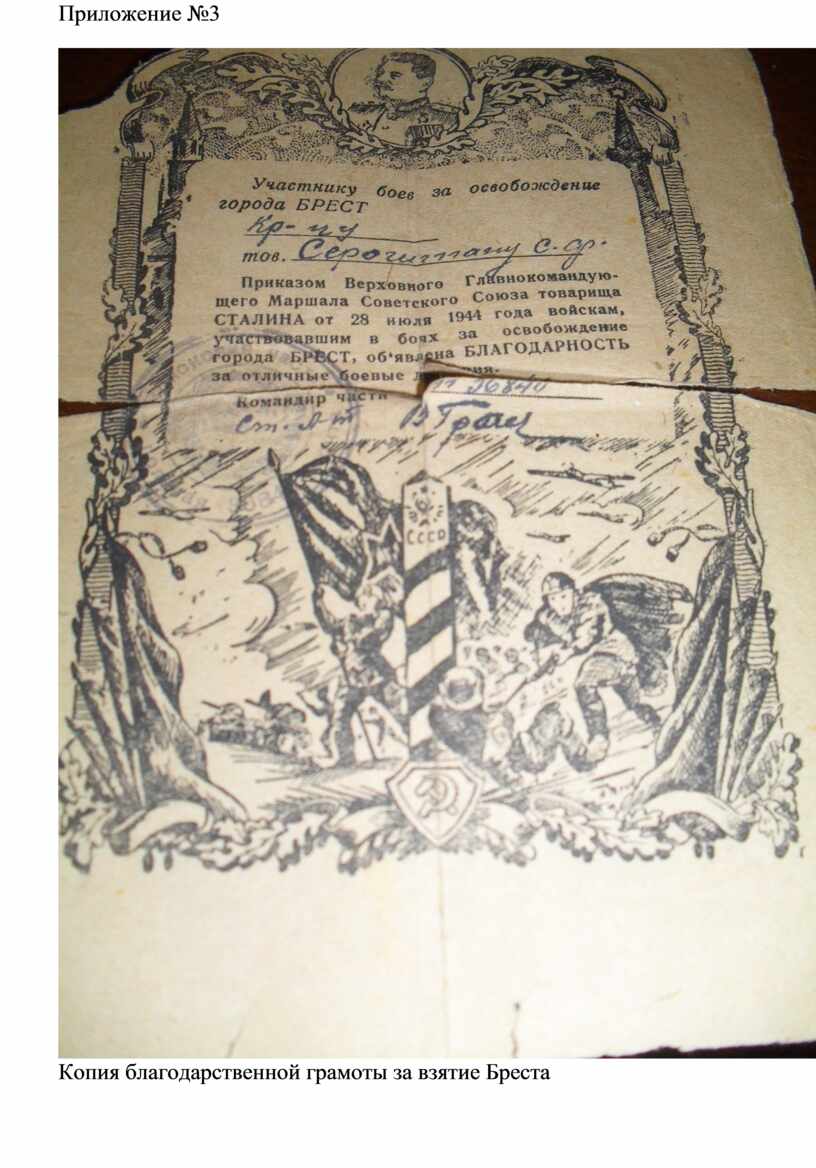 Приложение №3
Участнику боев за освобождение
города БРЕСТ
Кр-цу
тов. С. Ф.
Приказом Верховного Главнокомандую-
щего Маршала Советского Союза товарища
СТАЛИНА от 28 июля 1944 года войскам,
участвовавшим в боях за освобождение
города БРЕСТ, об'явлена БЛАГОДАРНОСТЬ
за отличные боевые
Командир части
Ст. Л-т
СССР
Копия благодарственной грамоты за взятие Бреста